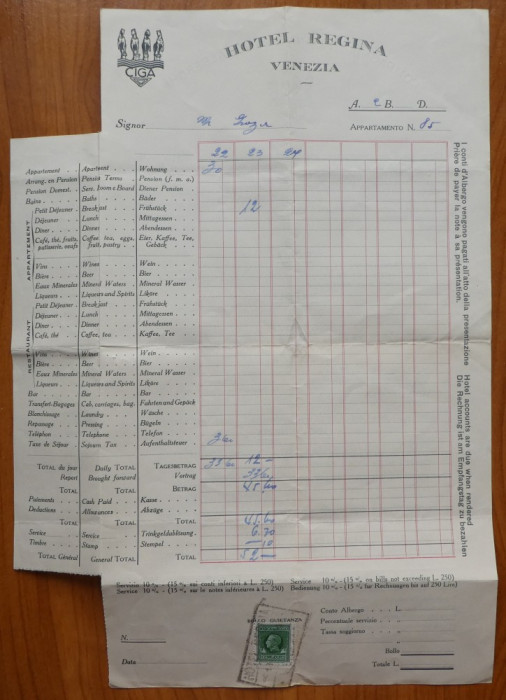 CIGA
HOTEL REGINA
VENEZIA
A. e B. D.
Signor
APPARTAMENTO N. 85
22 23 24
Appartement Apartment Wohnung 30
Arrang. en Pension Pension Terms Pension (f. m. a.)
Pension Domest. Serv. room e. Board Diener Pension
Bains Baths Bäder
APPARTEMENT
Petit Déjeuner Breakfast Frühstück 12
Déjeuner Lunch Mittagessen
Diner Dinner Abendessen
Café, thé, fruits, patisserie, oeufs Coffee tea, eggs, fruit, pastry Eier, Kaffee, Tee, Gebäck
Vins Wines Wein
Bière Beer Bier
Eaux Minerales Mineral Waters Mineral Wasser
Liqueurs Liqueurs and Spirits Liköre
RESTAURANT
Petit Déjeuner Breakfast Frühstück
Déjeuner Lunch Mittagessen
Diner Dinner Abendessen
Café, thé Coffee, tea Kaffee, Tee
Vins Wines Wein
Bière Beer Bier
Eaux Minerales Mineral Waters Mineral Wasser
Liqueurs Liqueurs and Spirits Liköre
Bar Bar Bar
Transfert-Bagages Cab, carriages, bag. Fahrten und Gepäck
Blanchissage Laundry Wäsche
Repassage Pressing Bügeln
Téléphon Telephone Telefon
Taxe de Séjour Sejourn Tax Aufenthaltsteuer
TOTAL du jour Daily TOTAL TAGESBETRAG 12
Report Bought forward Vortrag
TOTAL TOTAL BETRAG
Paiements Cash Paid Kasse
Deductions Allowances Abzüge
TOTAL TOTAL
Service Service Trinkgeldablösung
Timbre Stamp Stempel 10
TOTAL Général General TOTAL TOTAL 52
I conti d'Albergo vengono pagati all'atto della presentazione
Prière de payer la note à sa présentation.
Hotel accounts are due when rendered
Die Rechnung ist am Empfangstag zu bezahlen
Servizio 10 % - (15 % sui conti inferiori a L. 250) Service 10 % - (15 % on bills not exceeding L. 250)
Service 10 % - (15 % sur le notes inférieures à L. 250) Bedienung 10 % - (15 % für Rechnungen bis auf 250 Lire)
BOLLO QUIETANZA
Conto Albergo L.
Percentuale servizio
Tassa soggiorno
Bollo
Totale L.
N.
Data